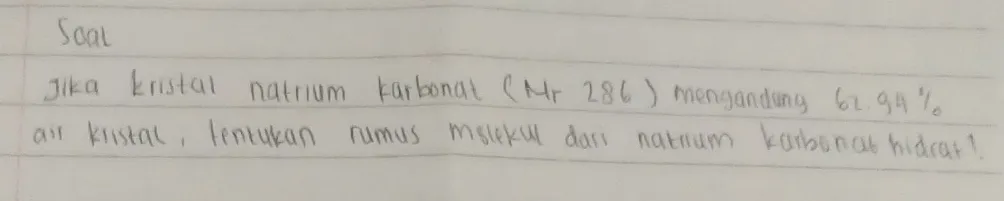 Soal
Jika kristal natrium karbonat (Mr 286) mengandung 62.94%
air kristal, tentukan rumus molekul dari natrium karbonat hidrat!